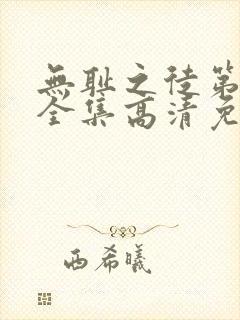 無耻之徒第
全集高清免
西希曦